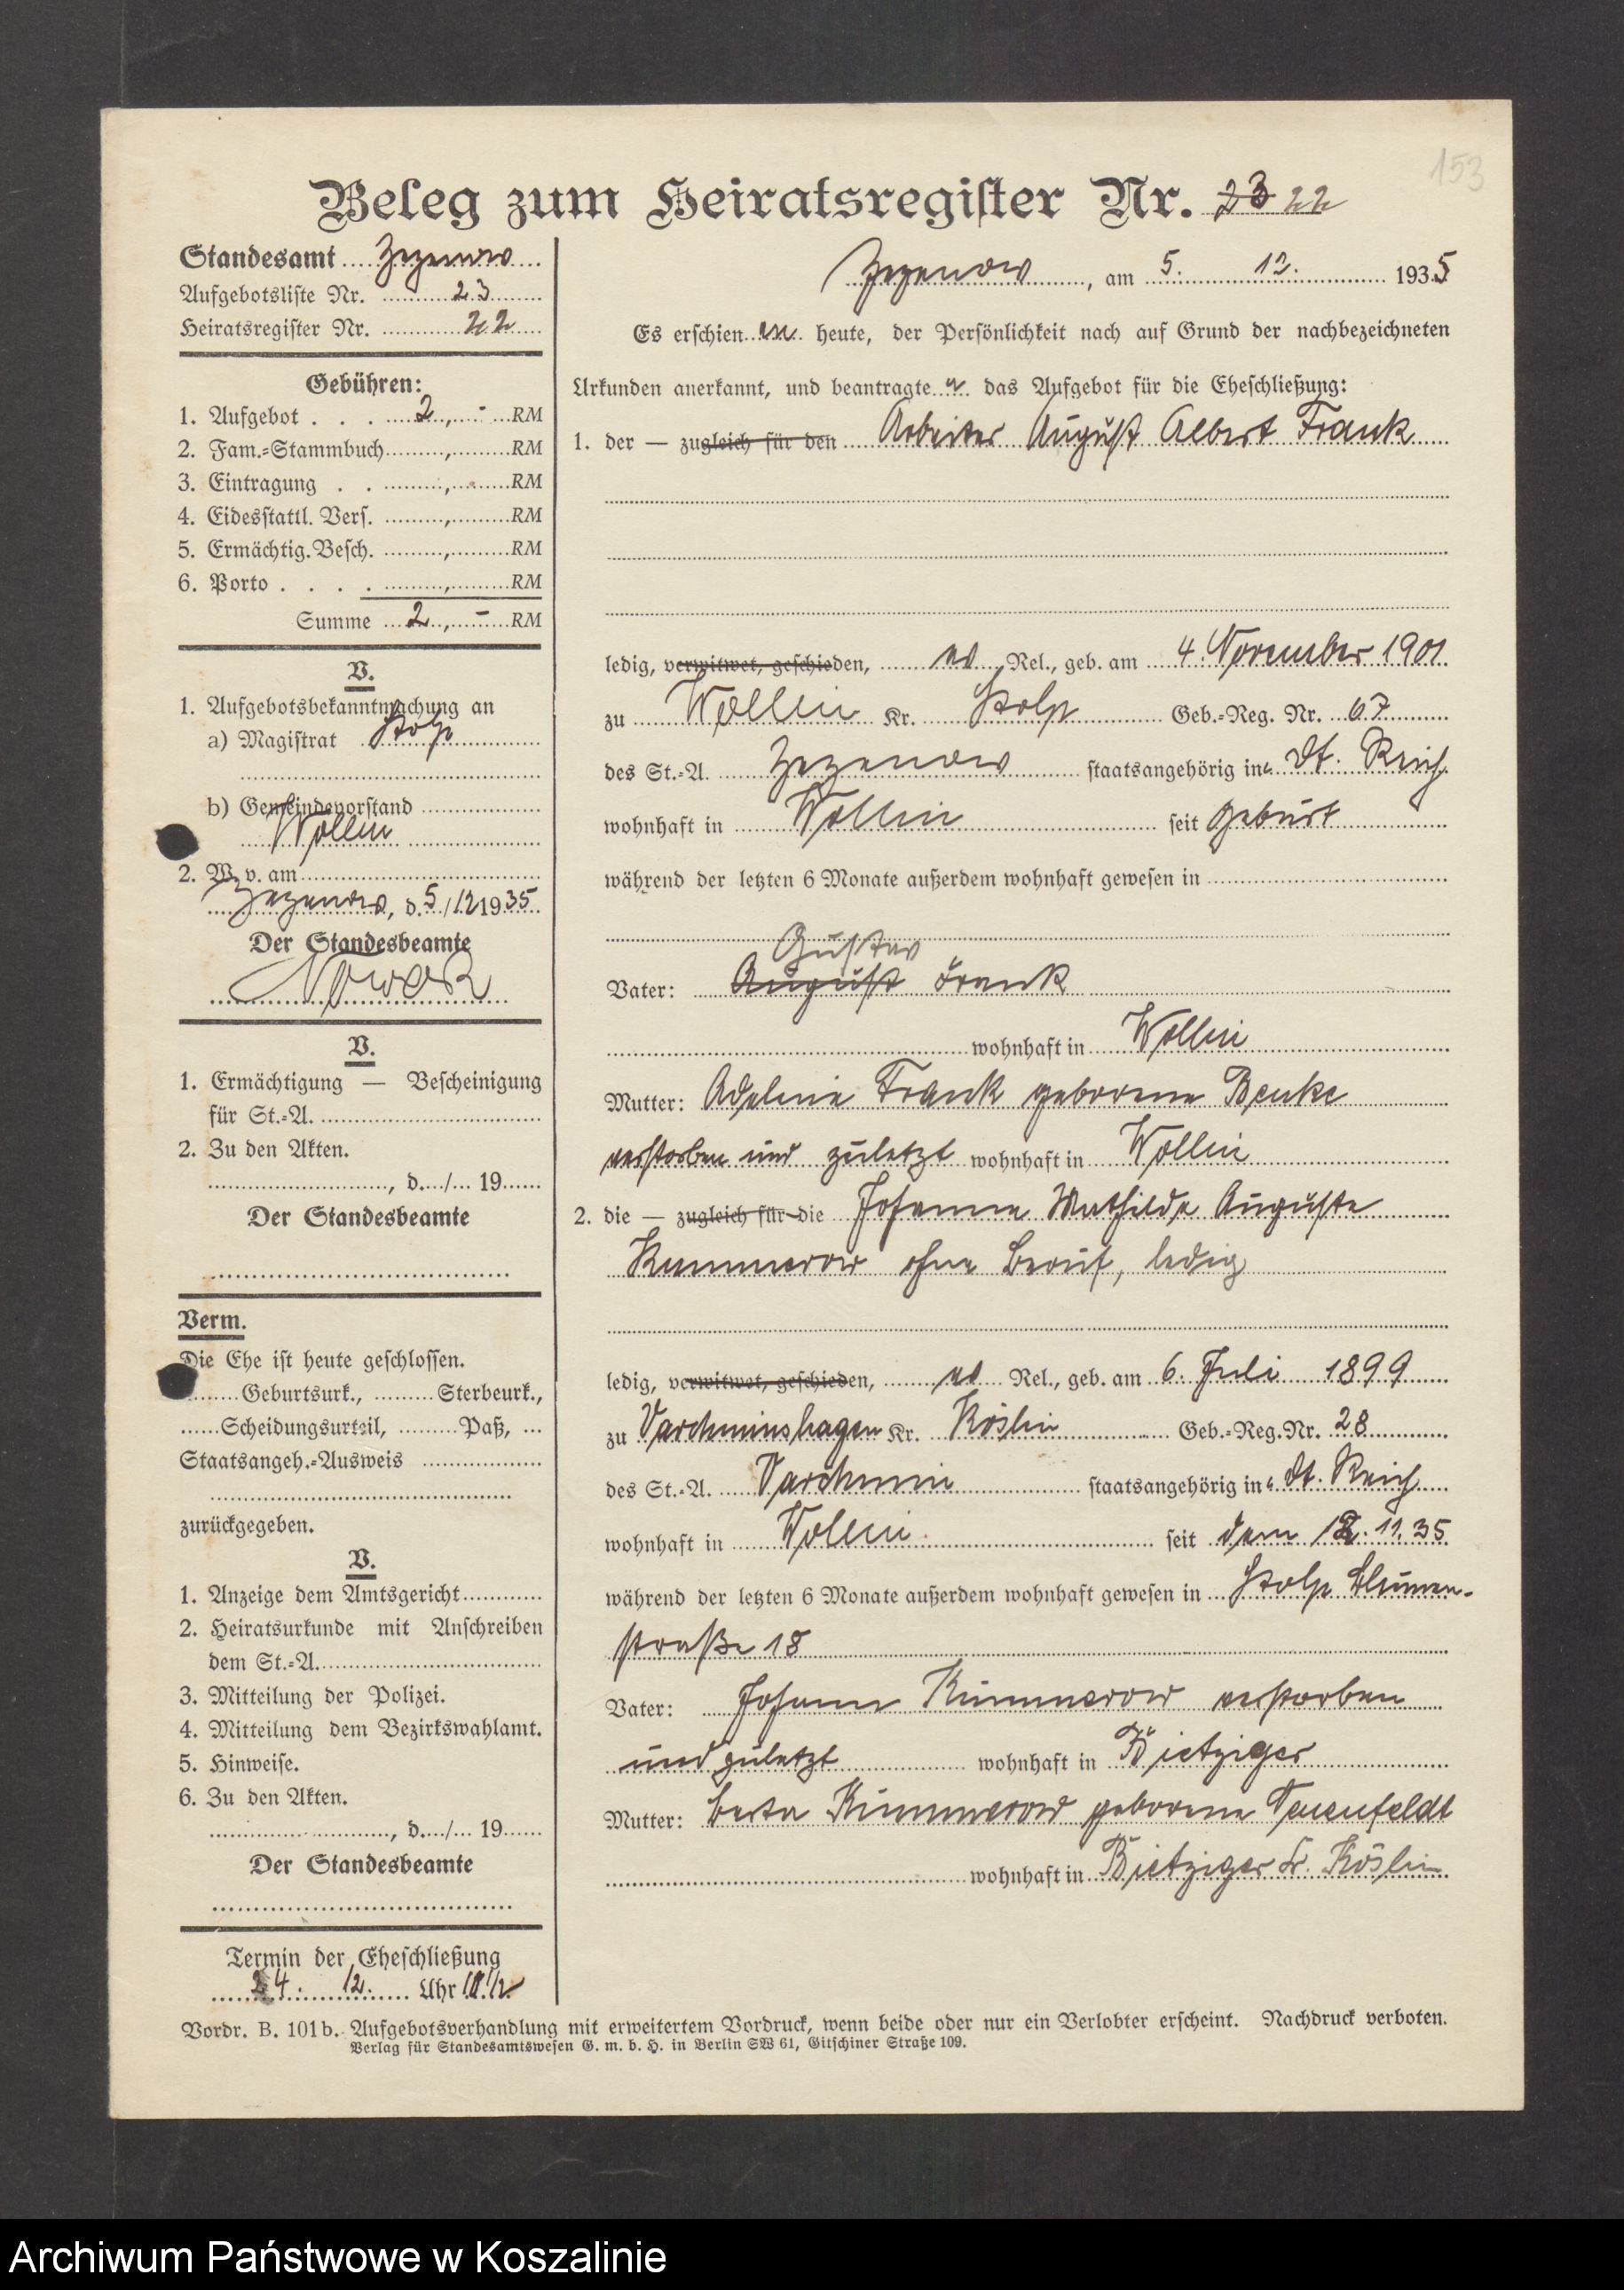 153
Beleg zum Heiratsregister Nr. 23 22
Standesamt Zezenow
Aufgebotsliste Nr. 23
Heiratsregister Nr. 22
Gebühren:
1. Aufgebot . . . 2,- RM
2. Fam.-Stammbuch , RM
3. Eintragung . . , RM
4. Eidesstattl. Vers. , RM
5. Ermächtig. Besch. , RM
6. Porto . . . . , RM
Summe 2,- RM
V.
1. Aufgebotsbekanntmachung an
a) Magistrat Stolp
b) Gemeindevorstand
Wollin
2. W. v. am
Zezenow, d. 5/12 1935
Der Standesbeamte
V.
1. Ermächtigung — Bescheinigung
für St.-A.
2. Zu den Akten.
, d. / 19
Der Standesbeamte
Verm.
Die Ehe ist heute geschlossen.
Geburtsurk., Sterbeurk.,
Scheidungsurteil, Paß,
Staatsangeh.-Ausweis
zurückgegeben.
V.
1. Anzeige dem Amtsgericht
2. Heiratsurkunde mit Anschreiben
dem St.-A.
3. Mitteilung der Polizei.
4. Mitteilung dem Bezirkswahlamt.
5. Hinweise.
6. Zu den Akten.
, d. / 19
Der Standesbeamte
Termin der Eheschließung
24. 12. Uhr
Zezenow, am 5. 12. 1935
Es erschien en heute, der Persönlichkeit nach auf Grund der nachbezeichneten
Urkunden anerkannt, und beantragte n das Aufgebot für die Eheschließung:
1. der — zugleich für den Arbeiter August Albert Frank
ledig, verwitwet, geschieden, ev. Rel., geb. am 4. November 1901
zu Wollin Kr. Stolp Geb.-Reg. Nr. 67
des St.-A. Zezenow staatsangehörig in Dt. Reich
wohnhaft in Wollin seit Geburt
während der letzten 6 Monate außerdem wohnhaft gewesen in
Gustav
Vater: August Frank
wohnhaft in Wollin
Mutter: Adeline Frank geborene Benke
verstorben und zuletzt wohnhaft in Wollin
2. die — zugleich für die Johanna Mathilde Auguste
Kummerow ohne Beruf, ledig
ledig, verwitwet, geschieden, ev. Rel., geb. am 6. Juli 1899
zu Varchminshagen Kr. Köslin Geb.-Reg. Nr. 28
des St.-A. Varchmin staatsangehörig in Dt. Reich
wohnhaft in Wollin seit dem 12. 11. 35
während der letzten 6 Monate außerdem wohnhaft gewesen in Stolp Blumen-
straße 18
Vater: Johann Kummerow verstorben
und zuletzt wohnhaft in Bietziger
Mutter: Berta Kummerow geborene
wohnhaft in Bietziger Kr. Köslin
Vordr. B. 101b. Aufgebotsverhandlung mit erweitertem Vordruck, wenn beide oder nur ein Verlobter erscheint. Nachdruck verboten.
Verlag für Standesamtswesen G. m. b. H. in Berlin SW 61, Gitschiner Straße 109.
Archiwum Państwowe w Koszalinie